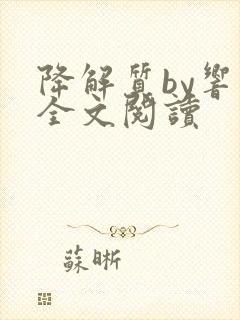 降解質by響
全文閱讀
蘇晰